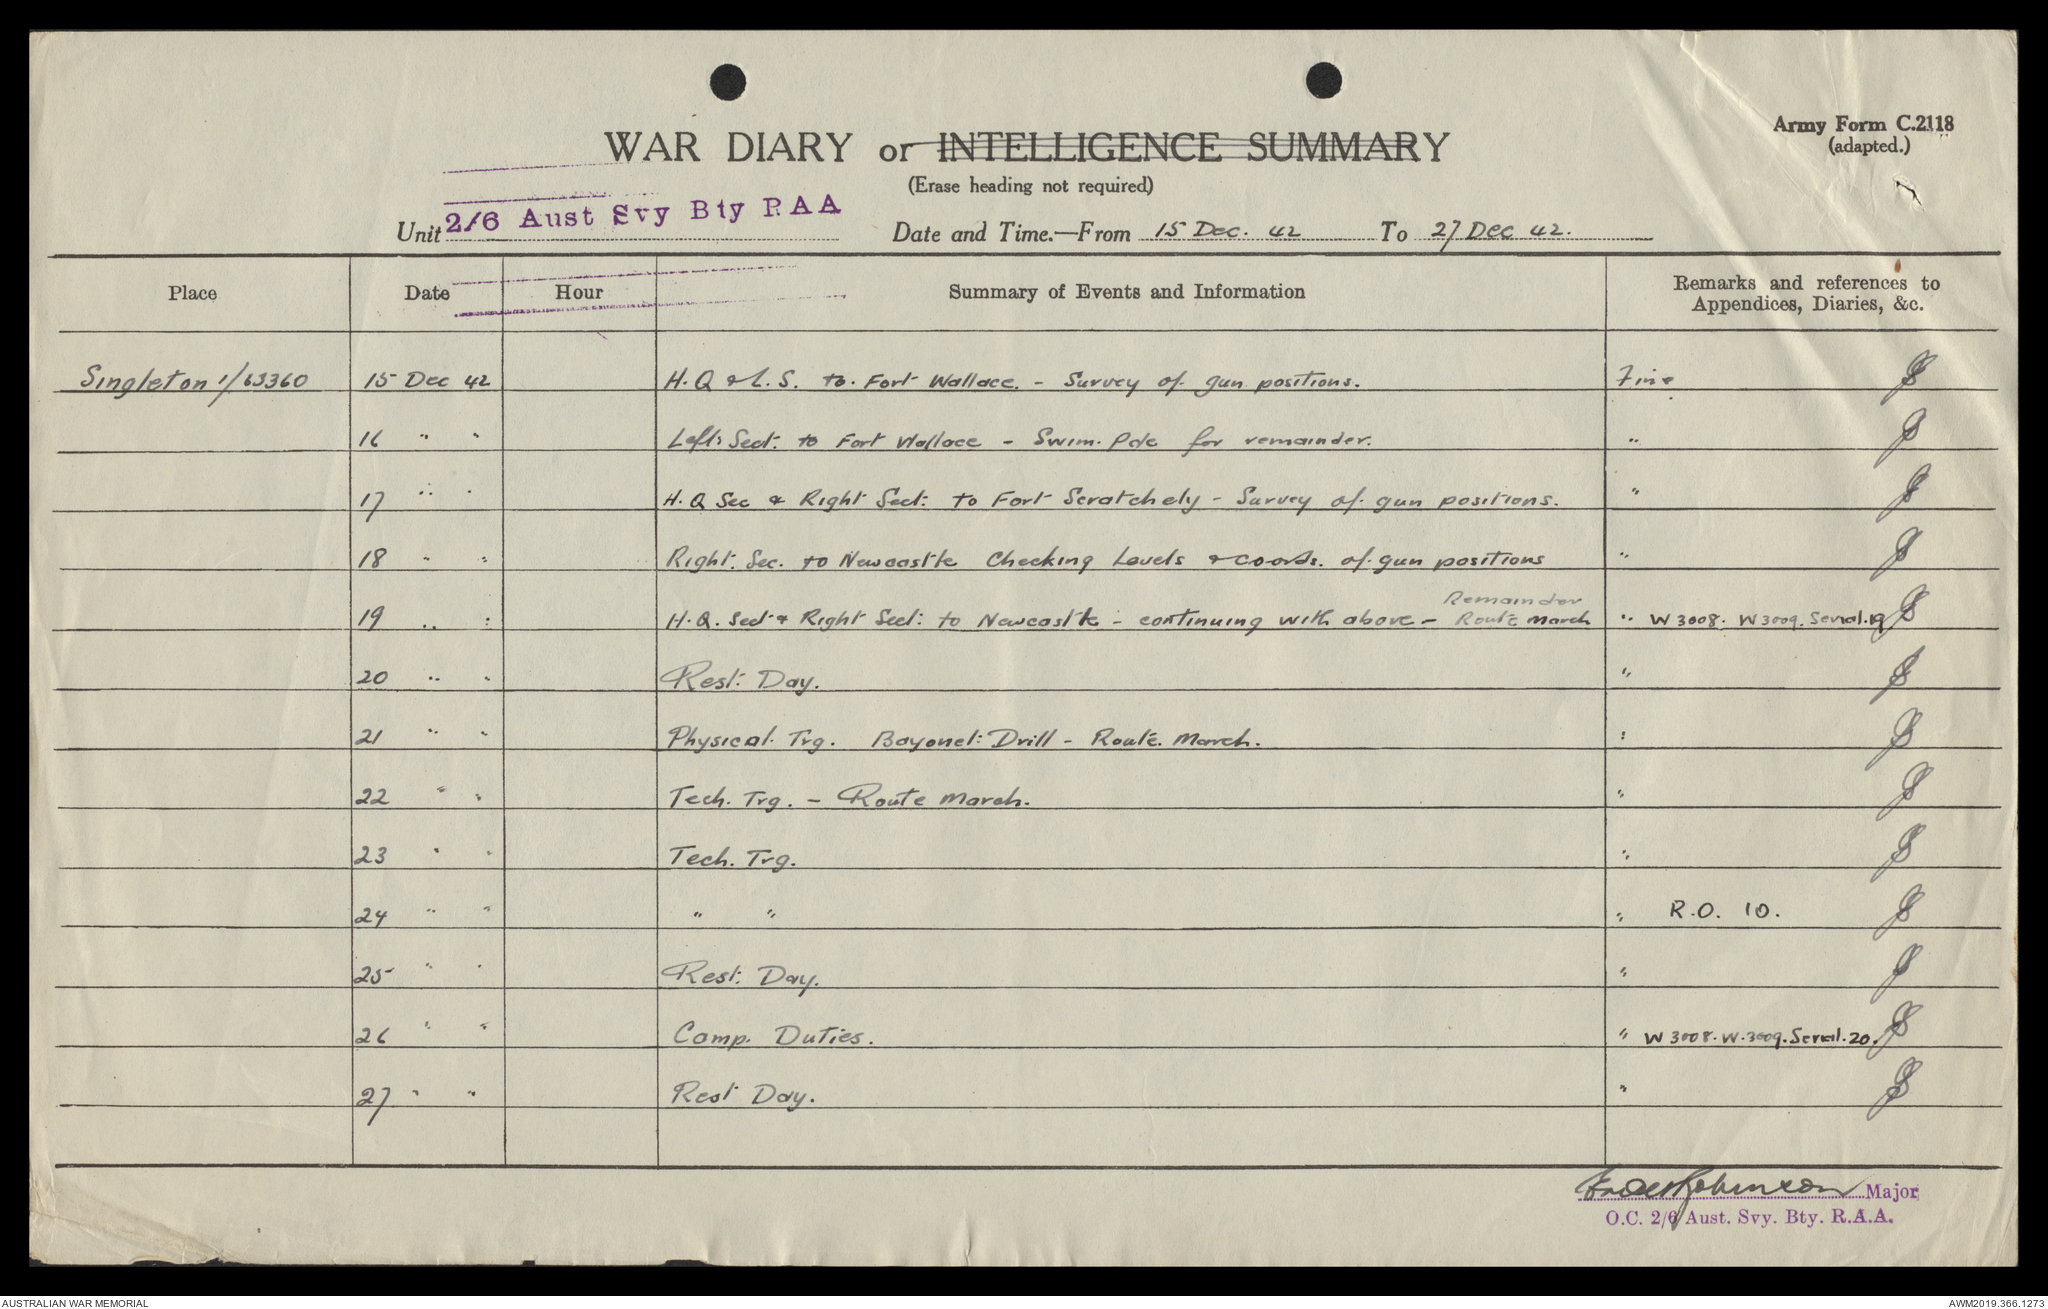 Army Form C.2118
(adapted.)
WAR DIARY or INTELLIGENCE SUMMARY
(Erase heading not required)
Unit 2/6 Aust Svy Bty RAA Date and Time.—From 15 Dec. 42 To 27 Dec 42.
Place Date Hour Summary of Events and Information Remarks and references to Appendices, Diaries, &c.
Singleton 1/63360 15 Dec 42 H.Q & L.S. to Fort Wallace. - Survey of gun positions. Fine
16 " " Left Sect. to Fort Wallace - Swim. Pde for remainder. "
17 " " H.Q Sec & Right Sect. to Fort Scratchely - Survey of gun positions. "
18 " " Right. Sec. to Newcastle Checking Levels & co-ords. of gun positions "
Remainder
19 " " H.Q. Sect & Right Sect. to Newcastle - continuing with above - Route March " W 3008. W 3009. Serial. 19
20 " " Rest Day. "
21 " " Physical Trg. Bayonet Drill - Route March. "
22 " " Tech. Trg. - Route March. "
23 " " Tech. Trg. "
24 " " " " " R.O. 10.
25 " " Rest Day. "
26 " " Camp Duties. " W 3008. W. 3009. Serial. 20.
27 " " Rest Day. "
Robinson Major
O.C. 2/6 Aust. Svy. Bty. R.A.A.
AUSTRALIAN WAR MEMORIAL AWM2019.366.1273